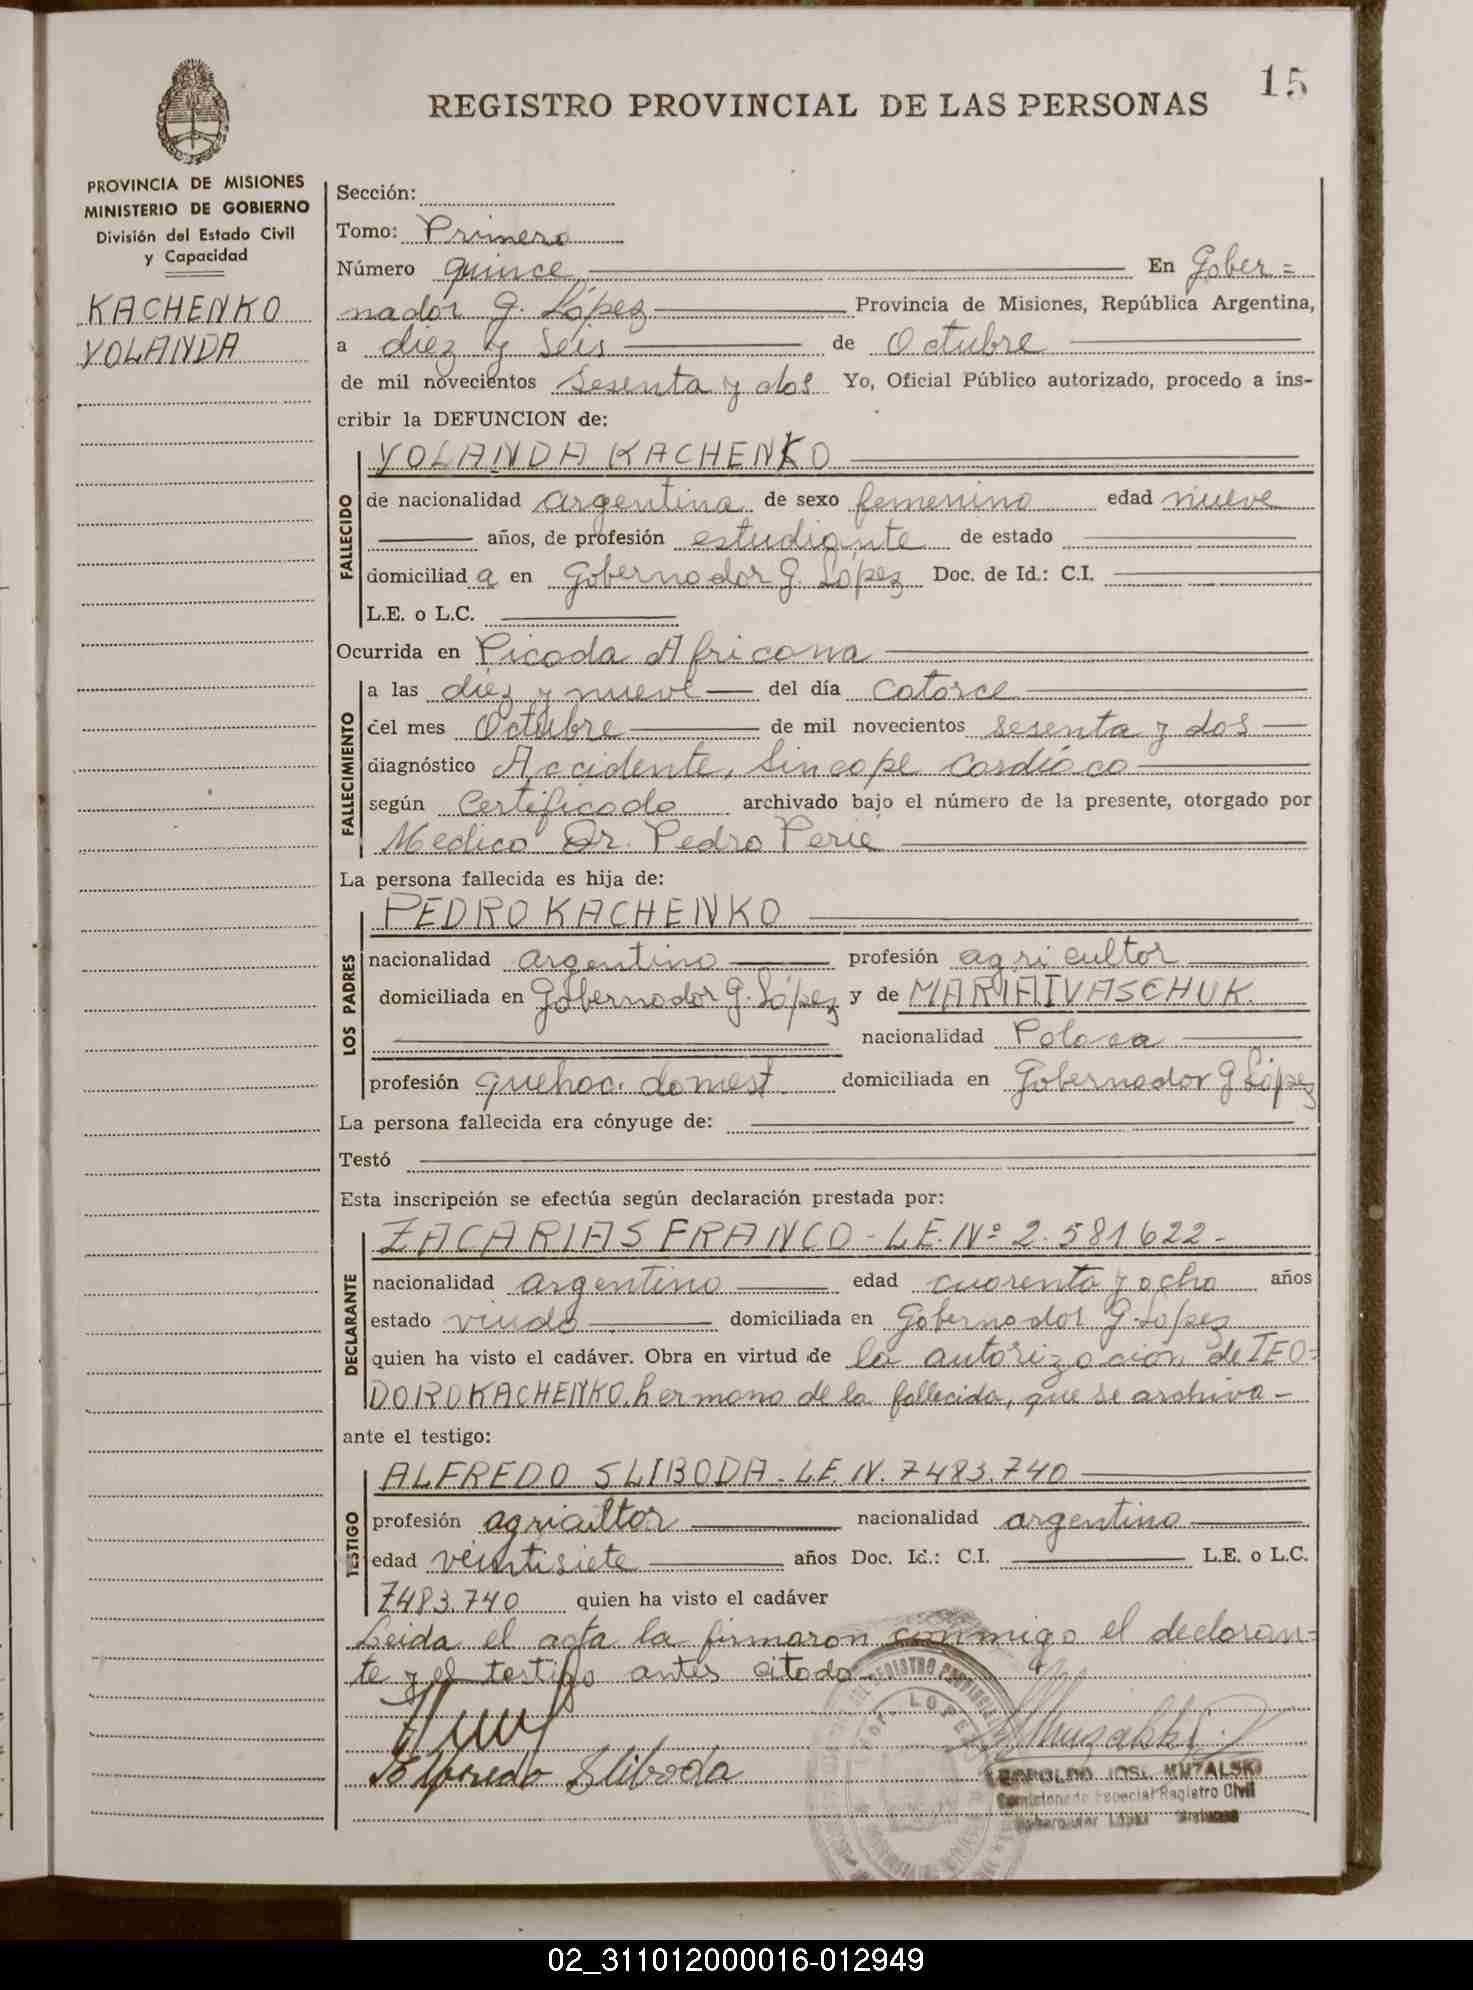 15
REGISTRO PROVINCIAL DE LAS PERSONAS
PROVINCIA DE MISIONES
MINISTERIO DE GOBIERNO
División del Estado Civil
y Capacidad
KACHENKO
YOLANDA
Sección:
Tomo: Primero
Número quince En Gober=
nador G. López Provincia de Misiones, República Argentina,
a diez y seis de Octubre
de mil novecientos sesenta y dos Yo, Oficial Público autorizado, procedo a ins-
cribir la DEFUNCION de:
YOLANDA KACHENKO
FALLECIDO
de nacionalidad argentina de sexo femenino edad nueve
años, de profesión estudiante de estado
domiciliad a en Gobernador G. López Doc. de Id.: C.I.
L.E. o L.C.
Ocurrida en Picada Africana
FALLECIMIENTO
a las diez y nueve del día catorce
del mes Octubre de mil novecientos sesenta y dos
diagnóstico Accidente, Sincope Cardíaco
según Certificado archivado bajo el número de la presente, otorgado por
Medico Dr. Pedro Perie
La persona fallecida es hija de:
LOS PADRES
PEDRO KACHENKO
nacionalidad argentino profesión agricultor
domiciliada en Gobernador G. López y de MARIA IVASCHUK.
nacionalidad Polaca
profesión quehac. domest. domiciliada en Gobernador G López
La persona fallecida era cónyuge de:
Testó
Esta inscripción se efectúa según declaración prestada por:
DECLARANTE
ZACARIAS FRANCO - L.E. Nº 2.581622.-
nacionalidad argentino edad cuarenta y ocho años
estado viudo domiciliada en Gobernador G. López
quien ha visto el cadáver. Obra en virtud de la autorización de TEO=
DORO KACHENKO, hermano de la fallecida, que se archiva -
ante el testigo:
TESTIGO
ALFREDO SLIBODA. L.E. N. 7483.740
profesión agricultor nacionalidad argentino
edad veintisiete años Doc. Id.: C.I. L.E. o L.C.
7483.740 quien ha visto el cadáver
Leida el acta la firmaron conmigo el declaran=
te y el testigo antes citado
Alfredo Sliboda
LEOPOLDO JOSE MUZALSKI
Comisionado Especial Registro Civil
Gobernador López Misiones
02_311012000016-012949